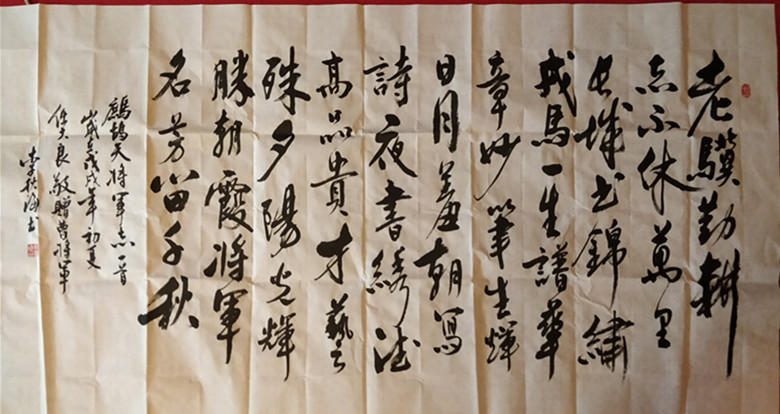 老驥勤耕
志不休萬里
长城书錦繡
戎馬一生譜華
章妙筆生輝
日月羞朝寫
詩夜書綉德
高品貴才藝
殊夕陽光輝
勝朝霞將軍
名芳留千秋
鷓鴣天將軍志一首
歲在戊戌年初夏
良敬贈曹將軍
李秋海书